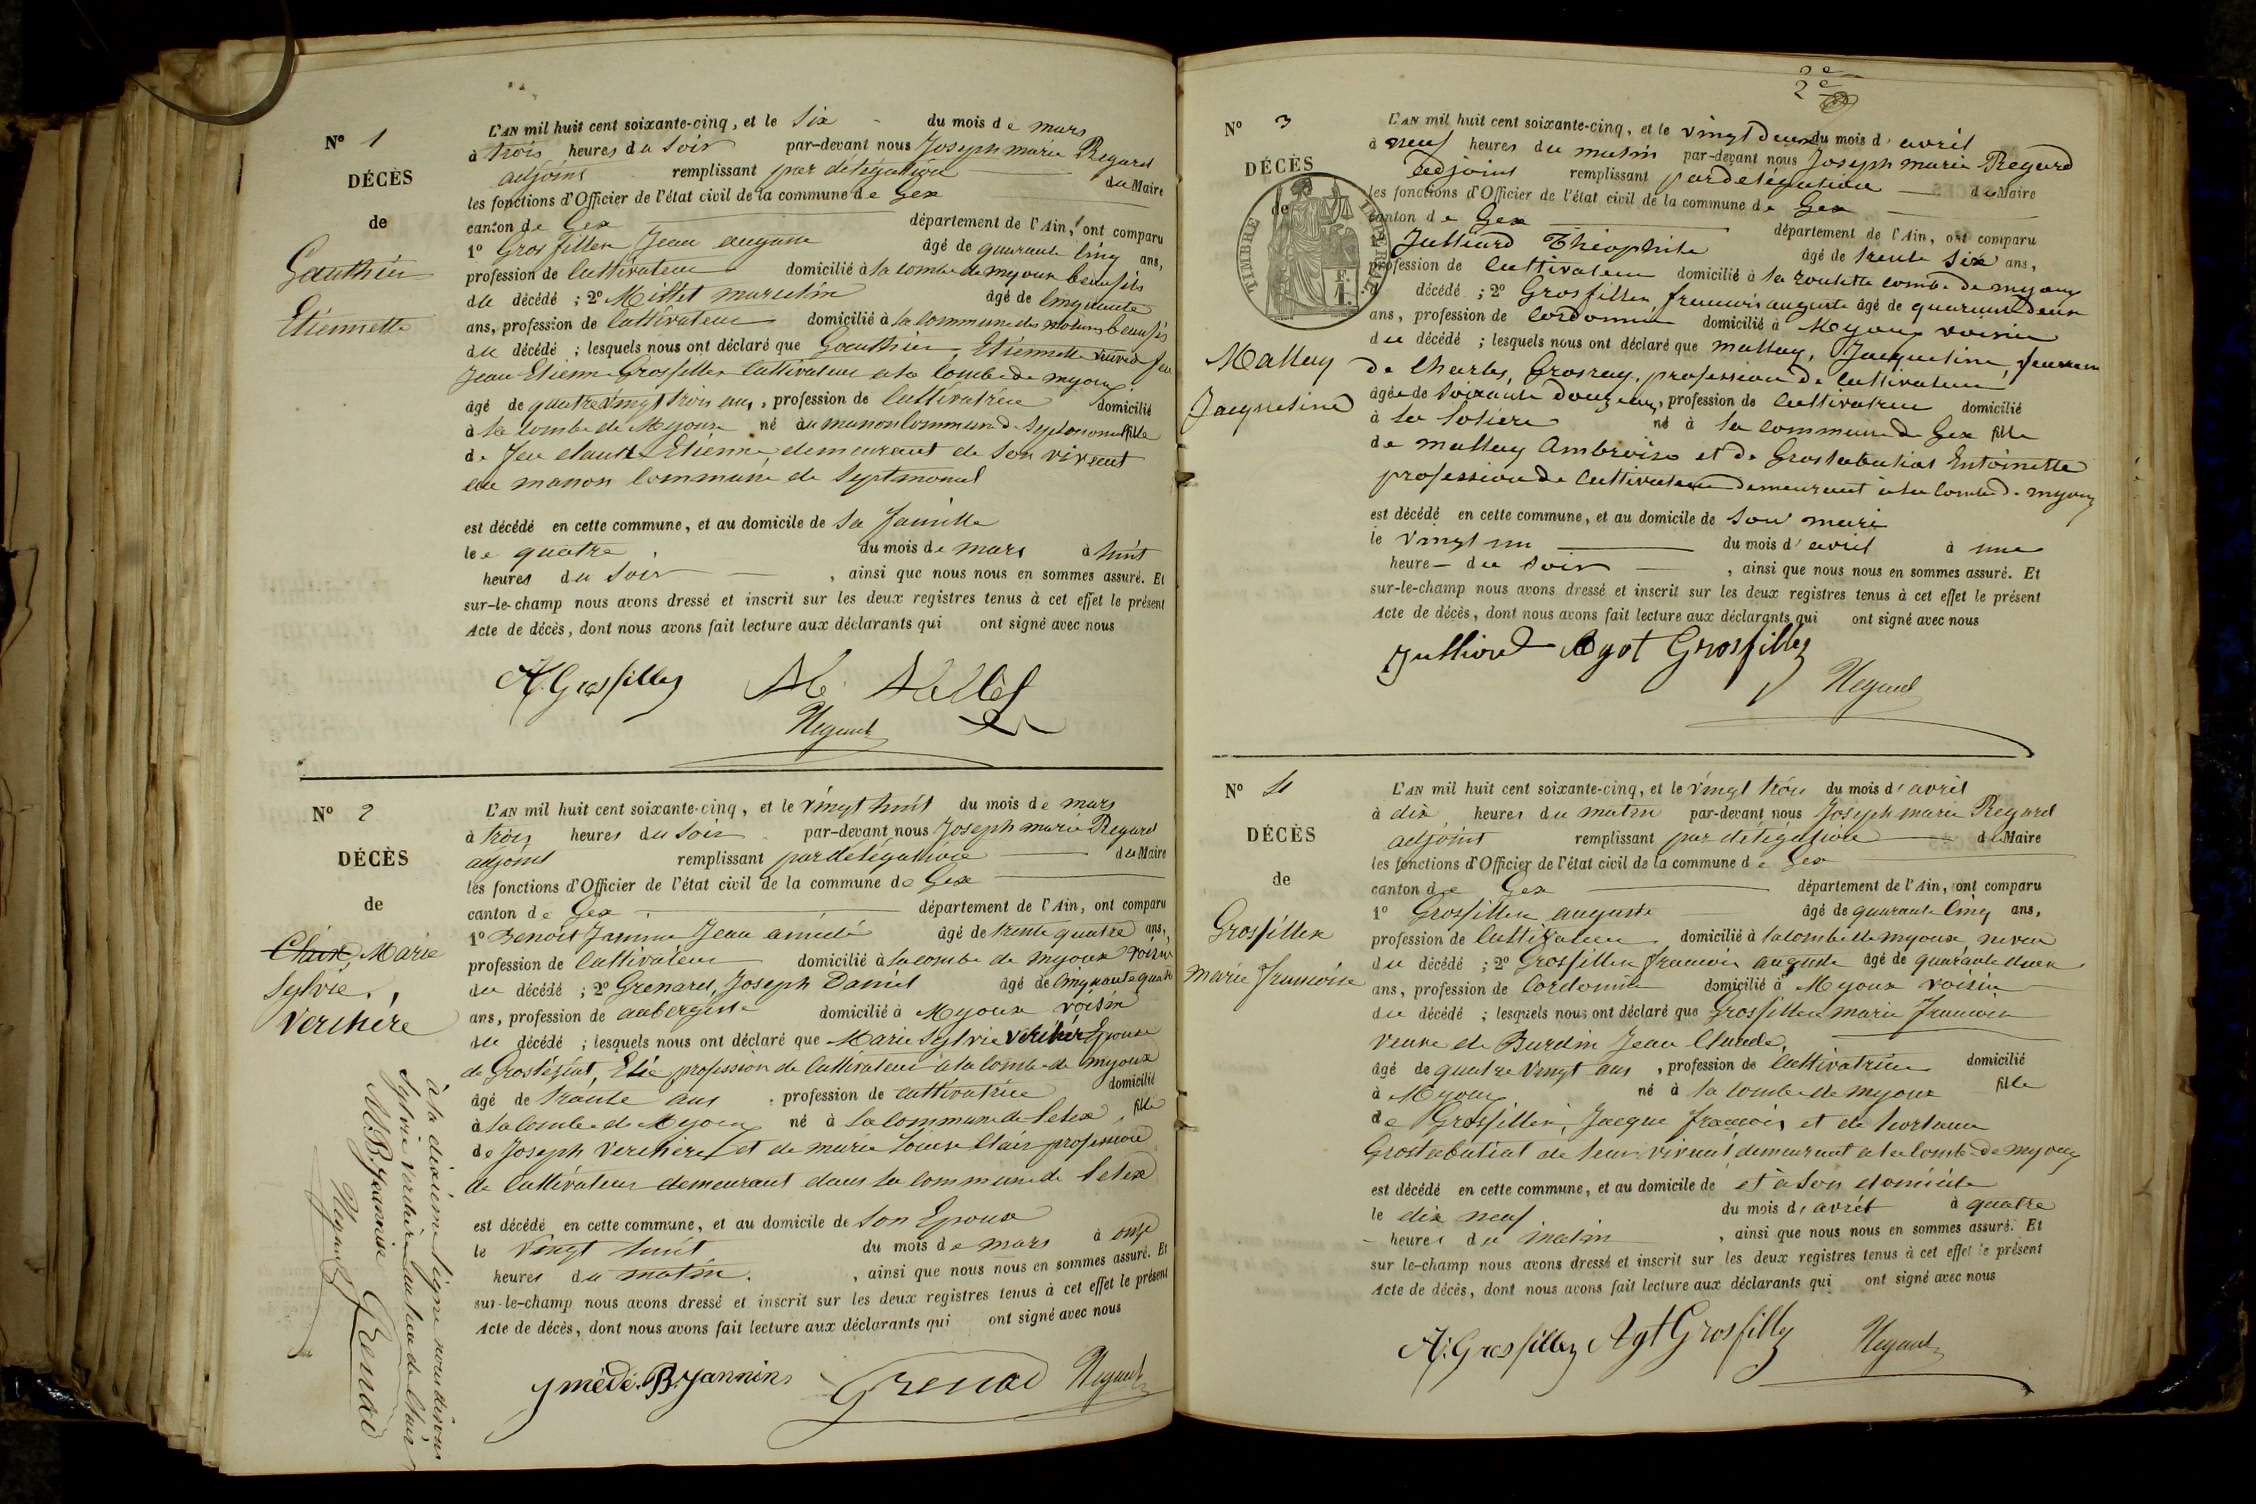 No 1
DÉCÈS
de
Gauthier
Etiennette
L'AN mil huit cent soixante-cinq, et le six du mois de mars
à trois heures du soir par-devant nous Joseph marie Regard
adjoint remplissant par délégation du Maire
les fonctions d'Officier de l'état civil de la commune de Gex
canton de Gex département de l'Ain, ont comparu
1o Gros fillex Jean auguste âgé de quarante cinq ans,
profession de Cultivateur domicilié à la combe de myoux beaufils
du décédé ; 2o Millet marcelin âgé de cinquante
ans, profession de Cultivateur domicilié à la commune des molunes beaufils
du décédé ; lesquels nous ont déclaré que Gauthier, Etiennette veuve feu
Jean Etienne Grosfillex Cultivateur a la combe de myoux
âgé de quatre vingt trois ans, profession de Cultivatrice domicilié
à la combe de Myoux né au manon Commune de Septmoncel fille
de feu claude Etienne, demeurant de son vivant
au manon Commune de Septmoncel
est décédé en cette commune, et au domicile de sa famille
le quatre du mois de mars à huit
heures du soir, ainsi que nous nous en sommes assuré. Et
sur-le-champ nous avons dressé et inscrit sur les deux registres tenus à cet effet le présent
Acte de décès, dont nous avons fait lecture aux déclarants qui ont signé avec nous
A. Grosfillez M. Millet
Regard
No 2
DÉCÈS
de
Clair Marie
Sylvie
Verchère
à la dixième ligne nous disons
Sylvie Verchère au lieu de Clair
Regard Grenard
L'AN mil huit cent soixante-cinq, et le vingt huit du mois de mars
à trois heures du soir par-devant nous Joseph marie Regard
adjoint remplissant par délégation du Maire
les fonctions d'Officier de l'état civil de la commune de Gex
canton de Gex département de l'Ain, ont comparu
1o Benoit Jannin Jean amédé âgé de trente quatre ans,
profession de Cultivateur domicilié à la combe de myoux voisin
du décédé ; 2o Grenard, Joseph Daniel âgé de cinquante quatre
ans, profession de aubergiste domicilié à Myoux voisin
du décédé ; lesquels nous ont déclaré que Marie Sylvie Verchère Epouse
de Grostéziat, Elie profession de Cultivateur à la combe de myoux
âgé de trente ans, profession de cultivatrice domicilié
à la combe de Myoux né à la commune de Lelex, fille
de Joseph Verchere et de marie Louise Clair profession
de Cultivateur demeurant dans la commune de Lelex
est décédé en cette commune, et au domicile de son Epoux
le vingt huit du mois de mars à onze
heures du matin, ainsi que nous nous en sommes assuré. Et
sur-le-champ nous avons dressé et inscrit sur les deux registres tenus à cet effet le présent
Acte de décès, dont nous avons fait lecture aux déclarants qui ont signé avec nous
Amédé. B. Jannin Grenard Regard
2e
2e
No 3
DÉCÈS
de
TIMBRE IMPÉRIAL
Mallay
Jacqueline
L'AN mil huit cent soixante-cinq, et le vingt deux du mois d'avril
à neuf heures du matin par-devant nous Joseph marie Regard
adjoint remplissant par délégation du Maire
les fonctions d'Officier de l'état civil de la commune de Gex
canton de Gex département de l'Ain, ont comparu
Julliard Théophile âgé de trente six ans,
profession de Cultivateur domicilié à la combe de myoux
décédé ; 2o Grosfillex francois auguste âgé de quarante deux
ans, profession de Cordonnier domicilié à Myoux voisin
du décédé ; lesquels nous ont déclaré que mallay, Jacqueline,
de Charles, Grosray, profession de Cultivateur
âgée de soixante douze ans, profession de Cultivatrice domicilié
à la né à la commune de Gex fille
de mallay Ambroise et de Grostabutiat Entoinette
profession de Cultivateur demeurant à la Combe de myoux
est décédé en cette commune, et au domicile de son mari
le vingt un du mois d'avril à une
heure du soir, ainsi que nous nous en sommes assuré. Et
sur-le-champ nous avons dressé et inscrit sur les deux registres tenus à cet effet le présent
Acte de décès, dont nous avons fait lecture aux déclarants qui ont signé avec nous
Julliard Agt Grosfillez
Regard
No 4
DÉCÈS
de
Grosfillex
marie francoise
L'AN mil huit cent soixante-cinq, et le vingt trois du mois d'avril
à dix heures du matin par-devant nous Joseph marie Regard
adjoint remplissant par délégation du Maire
les fonctions d'Officier de l'état civil de la commune de Gex
canton de Gex département de l'Ain, ont comparu
1o Grosfillex auguste âgé de quarante Cinq ans,
profession de Cultivateur domicilié à la combe de myoux neveu
du décédé ; 2o Grosfillex francois auguste âgé de quarante deux
ans, profession de Cordonnier domicilié à Myoux voisin
du décédé ; lesquels nous ont déclaré que Grosfillex marie francoise
veuve de Burdin Jean Claude,
âgé de quatre vingt ans, profession de Cultivatrice domicilié
à Myoux né à la combe de myoux fille
de Grosfillex, Jacque francois et de
Grostabutiat de leur vivant demeurant a la Combe de myoux
est décédé en cette commune, et au domicile de et à son domicile
le dix neuf du mois d'avril à quatre
heures du matin, ainsi que nous nous en sommes assuré. Et
sur-le-champ nous avons dressé et inscrit sur les deux registres tenus à cet effet le présent
Acte de décès, dont nous avons fait lecture aux déclarants qui ont signé avec nous
A. Grosfillez Agt Grosfillez Regard